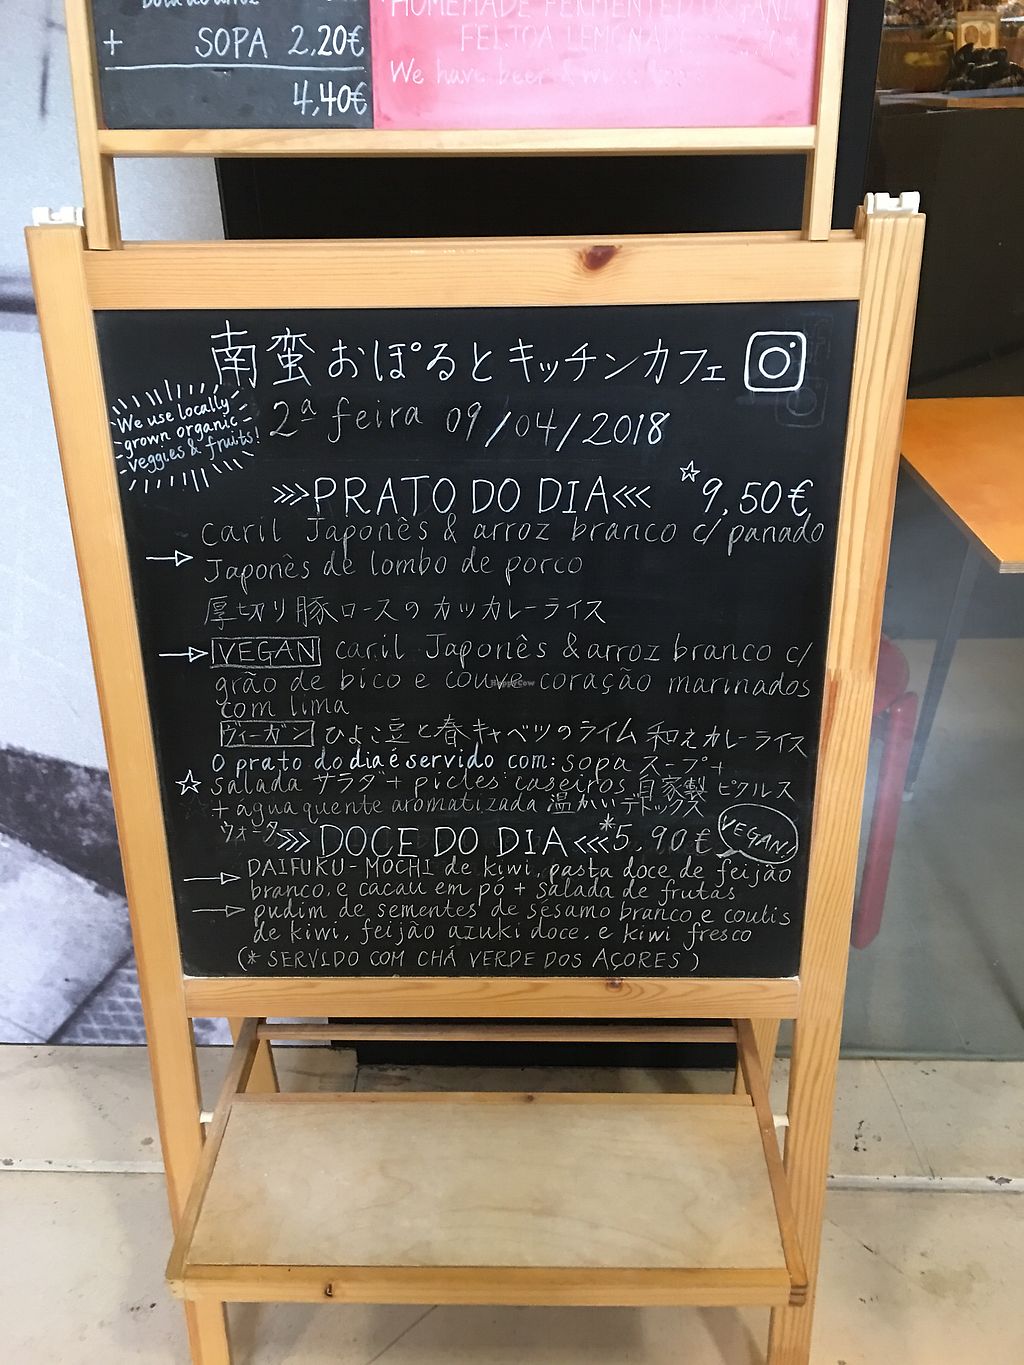 + SOPA 2,20€
4,40€
HOMEMADE FERMENTED ORGANI
FEIJOA LEMONA
We have beer & wi
南蛮おぽるとキッチンカフェ
We use locally
grown organic
veggies & fruits!
2ª feira 09/04/2018
>>>PRATO DO DIA<<< ☆9,50€
→ caril Japonês & arroz branco c/ panado
Japonês de lombo de porco
厚切り豚ロースのカツカレーライス
→ VEGAN caril Japonês & arroz branco c/
grão de bico e couve coração marinados
com lima
ヴィーガン ひよこ豆と春キャベツのライム和えカレーライス
O prato do dia é servido com: sopa スープ+
☆ salada サラダ + picles caseiros 自家製 ピクルス
+ água quente aromatizada 温かいデトックス
ウォーター
>>>DOCE DO DIA<<< *5,90€ VEGAN!
→ DAIFUKU-MOCHI de kiwi, pasta doce de feijão
branco, e cacau em pó + salada de frutas
→ pudim de sementes de sésamo branco e coulis
de kiwi, feijão azuki doce, e kiwi fresco
(* SERVIDO COM CHÁ VERDE DOS AÇORES)
HappyCow